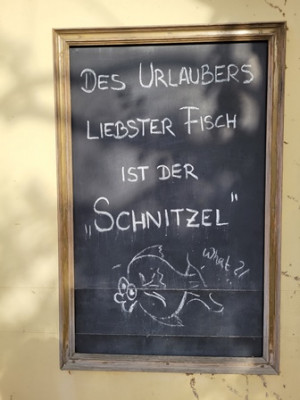 DES URLAUBERS
LIEBSTER FISCH
IST DER
„SCHNITZEL"
What?!